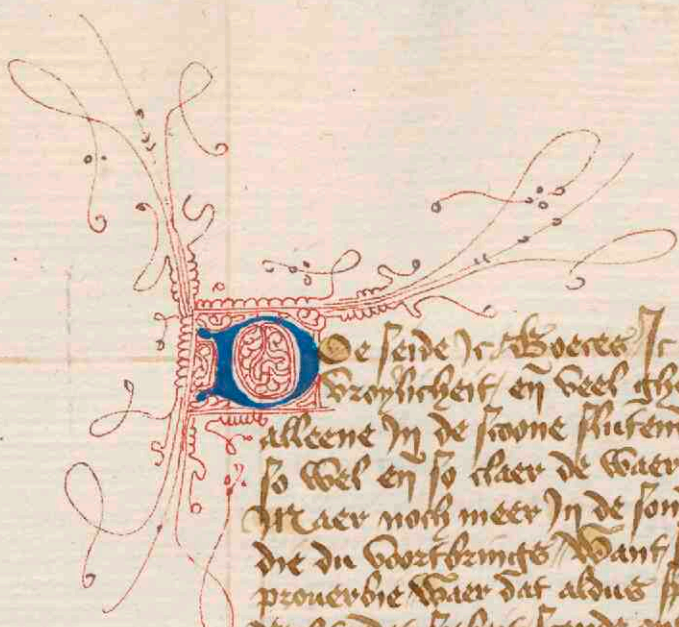 Doe seide Ic Boeces Ic
vroylicheit / en̄ veel ghe
alleene In de scoone sluten
so wel en̄ so claer de waer
Maer noch meer In de son
die du voortbrings / Want
prouerbie waer dat aldus sp